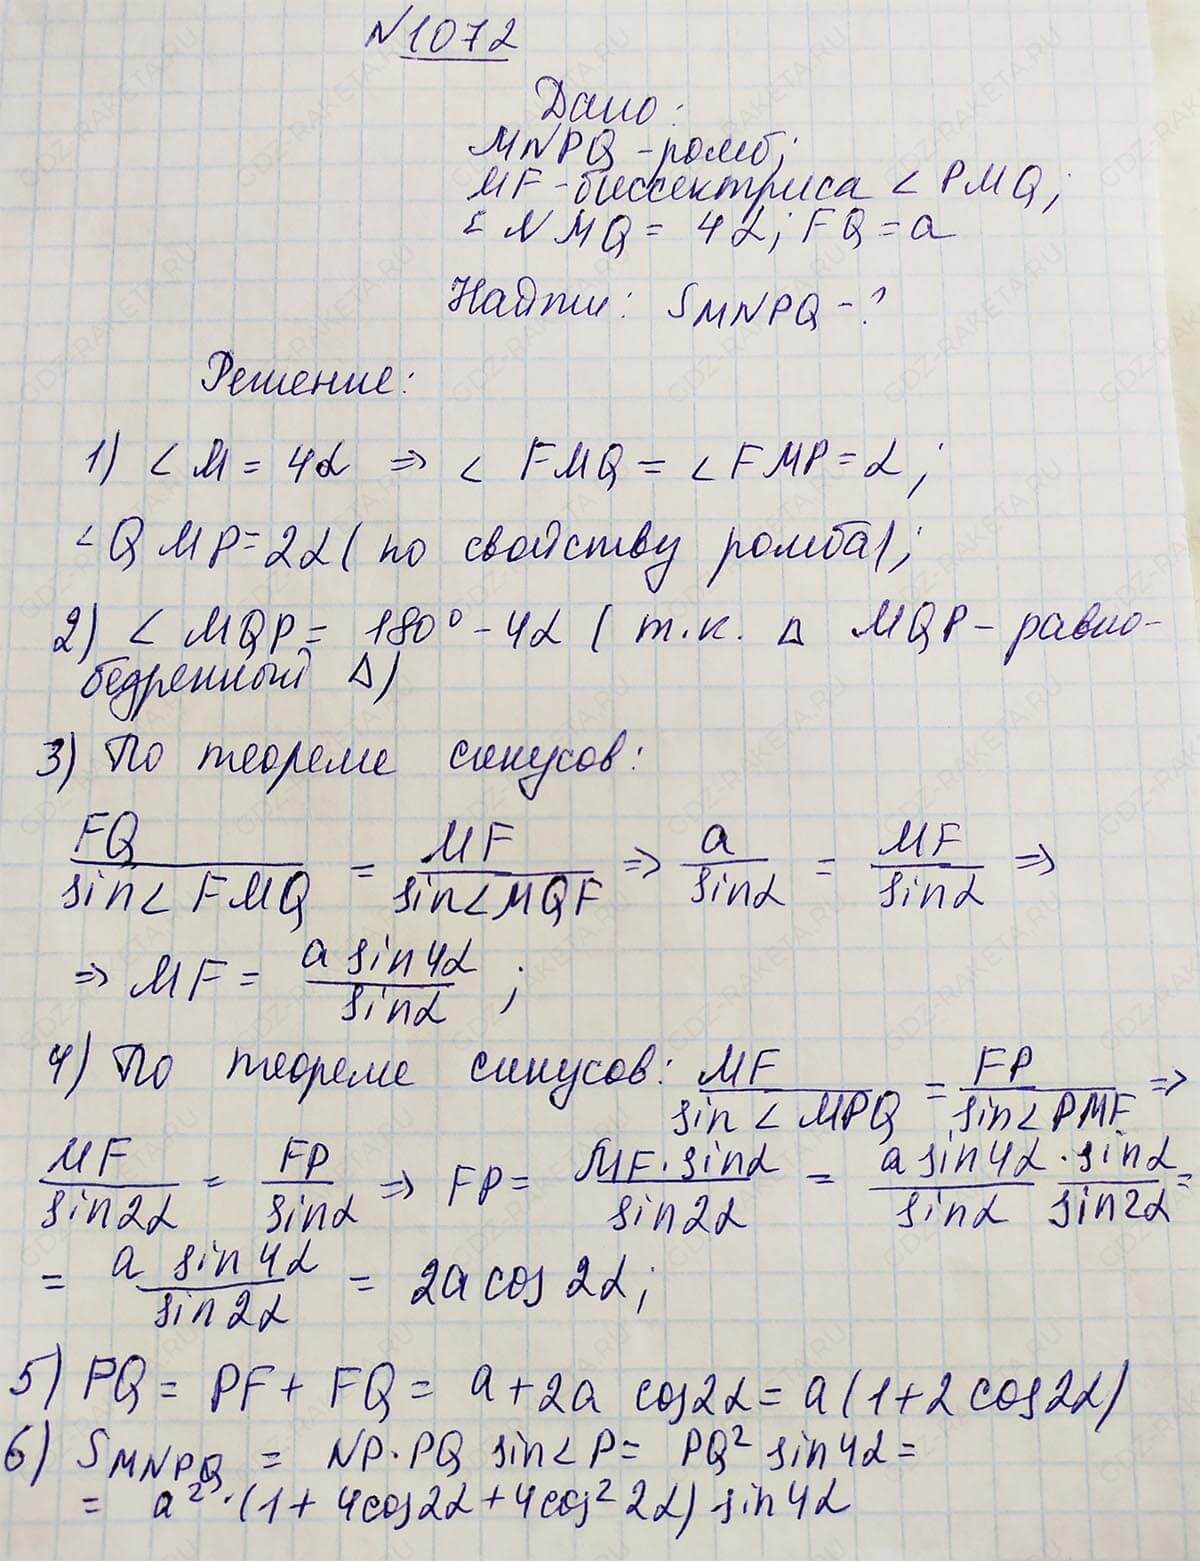 N1072
Дано:
MNPQ - ромб;
MF - биссектриса ∠ PMQ;
∠ NMQ = 4α; FQ = a
Найти: S MNPQ - ?
Решение:
1) ∠ M = 4α ⇒ ∠ FMQ = ∠ FMP = α;
∠ QMP = 2α (по свойству ромба);
2) ∠ MQP = 180° - 4α (т.к. Δ MQP - равно-
бедренный Δ)
3) По теореме синусов:
FQ / sin∠FMQ = MF / sin∠MQF ⇒ a / sinα = MF / sinα ⇒
⇒ MF = a sin4α / sinα ;
4) По теореме синусов: MF / sin∠MPQ = FP / sin∠PMF ⇒
MF / sin2α = FP / sinα ⇒ FP = MF · sinα / sin2α = a sin4α / sinα · sinα / sin2α =
= a sin4α / sin2α = 2a cos 2α;
5) PQ = PF + FQ = a + 2a cos2α = a(1 + 2cos2α)
6) S MNPQ = NP · PQ sin∠P = PQ² sin4α =
= a² · (1 + 4cos2α + 4cos² 2α) sin4α
GDZ-RAKETA.RU